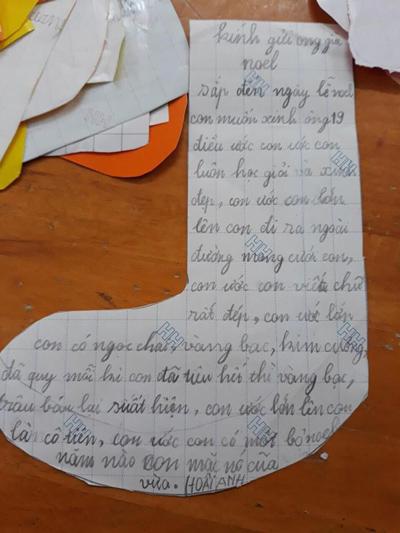 kính gửi ong gia
noel
sắp đến ngày lễ noel
con muốn xinh ông 19
điều ước con ước con
luôn học giỏi và xinh
đẹp, con ước con lớn
lên con đi ra ngoài
đường mang cười con,
con ước con viết chữ
rất đẹp, con ước lớn
con có ngọc chai, vàng bạc, kim cương,
đá quy mỗi khi con đã tiêu hết thì vàng bạc,
trâu báu lại suất hiện, con ước lớn lên con
làn cô tiên, con ước con có một bộ noel
năm nào con mặc nó cũa
vừa. HOÀI ANH